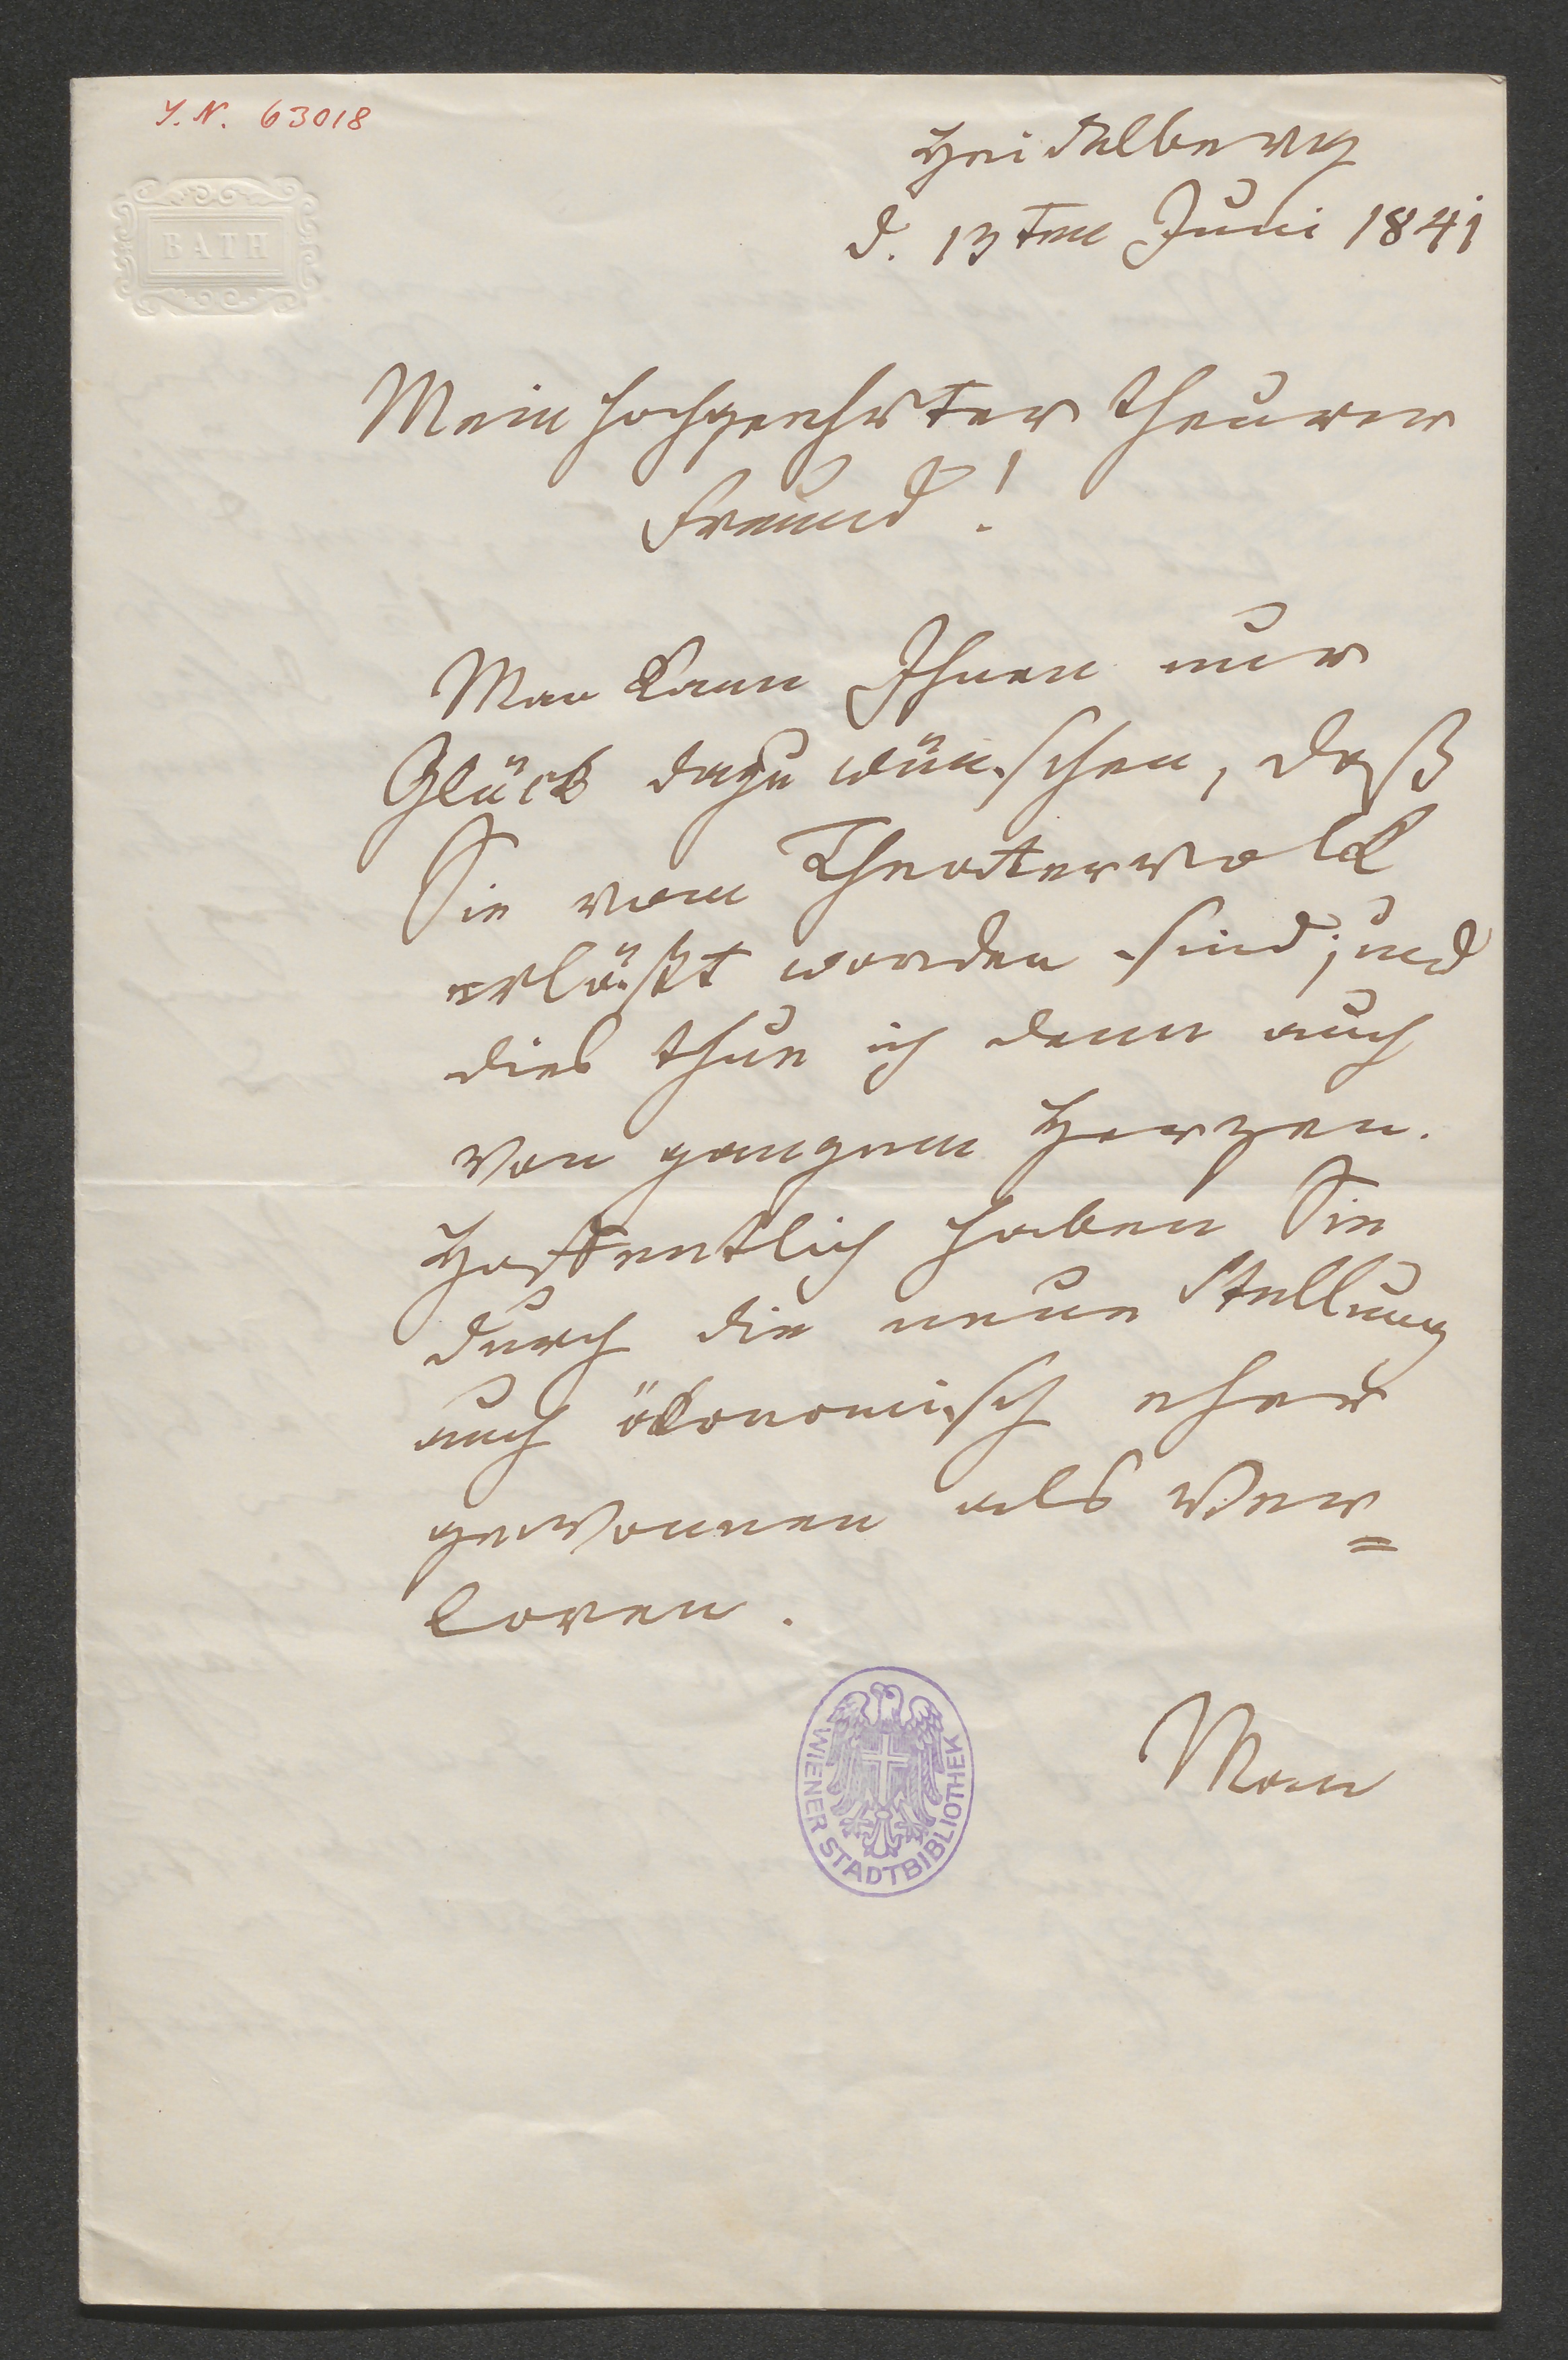 J. N. 63018
BATH
Heidelberg
d. 13ten Juni 1841
Mein hochgeehrter theurer
Freund!
Man kann Ihnen nur
Glück dazu wünschen, daß
Sie vom Theatervolk
erlößt worden sind; und
dies thue ich denn auch
von ganzem Herzen.
Hoffentlich haben Sie
durch die neue Stellung
auch ökonomisch eher
gewonnen als ver=
loren.
WIENER STADTBIBLIOTHEK
Man